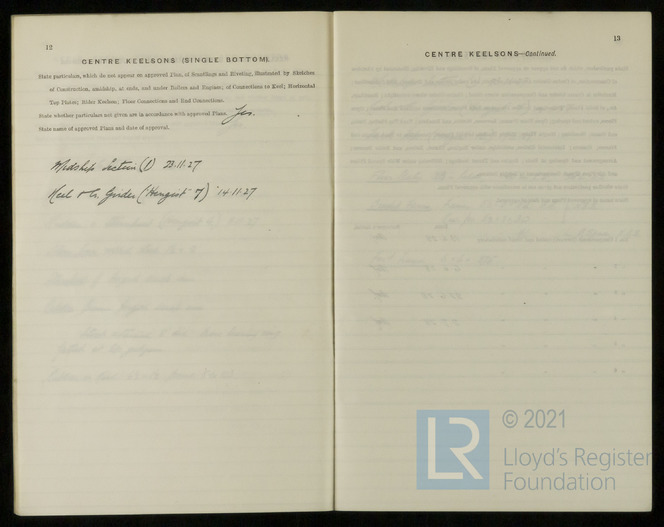 12
CENTRE KEELSONS (SINGLE BOTTOM).
State particulars, which do not appear on approved Plan, of Scantlings and Riveting, illustrated by Sketches
of Construction, amidship, at ends, and under Boilers and Engines; of Connections to Keel; Horizontal
Top Plates; Rider Keelson; Floor Connections and End Connections.
State whether particulars not given are in accordance with approved Plans. Yes.
State name of approved Plans and date of approval.
Midship Section (1) 23.11.27
Keel & Cr. Girder (Hengist 7) 14.11.27
13
CENTRE KEELSONS—Continued.
LR
© 2021
Lloyd's Register
Foundation